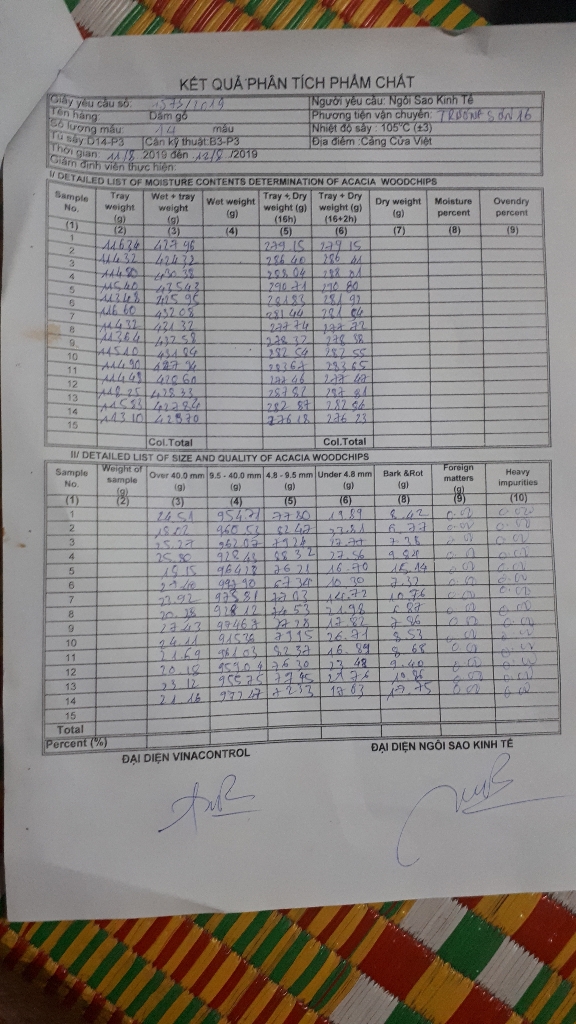 KẾT QUẢ PHÂN TÍCH PHẨM CHẤT
Giấy yêu cầu số: 1575/2019 Người yêu cầu: Ngôi Sao Kinh Tế
Tên hàng: Dăm gỗ Phương tiện vận chuyển: TRƯỜNG SƠN 16
Số lượng mẫu: 14 mẫu Nhiệt độ sấy : 105°C (±3)
Tủ sấy:D14-P3 Cân kỹ thuật:B3-P3 Địa điểm :Cảng Cửa Việt
Thời gian: 11/8 2019 đến 12/8 /2019
Giám định viên thực hiện:
I/ DETAILED LIST OF MOISTURE CONTENTS DETERMINATION OF ACACIA WOODCHIPS
Sample No. Tray weight (g) Wet + tray weight (g) Wet weight (g) Tray + Dry weight (g) (16h) Tray + Dry weight (g) (16+2h) Dry weight (g) Moisture percent Ovendry percent
(1) (2) (3) (4) (5) (6) (7) (8) (9)
1 116 34 427 96 279 15 279 15
2 114 32 286 40 286 41
3 114 80 430 38 288 04
4 115 40 435 43 290 71 290 80
5 425 95 281 83 281 92
6 116 60 432 08 281 44
7 114 32 431 32 277 74 277 72
8 113 64 432 58 278 32
9 115 10 431 84 282 54 282 55
10 114 90 283 67 283 65
11 114 49 428 60 277 46 277 47
12 428 33 287 82 287 81
13 115 83 427 84 282 87
14 113 10 428 70 276 18 276 23
15
Col.Total Col.Total
II/ DETAILED LIST OF SIZE AND QUALITY OF ACACIA WOODCHIPS
Sample No. Weight of sample (g) Over 40.0 mm (g) 9.5 - 40.0 mm (g) 4.8 - 9.5 mm (g) Under 4.8 mm (g) Bark &Rot (g) Foreign matters (g) Heavy impurities
(1) (2) (3) (4) (5) (6) (8) (9) (10)
1 24.51 954 71 77 80 19.89 8.42 0.00 0.00
2 960 53 82 47 6.77 0.00 0.00
3 25.27 962 07 79 28 7.38 0.00 0.00
4 25.80 928 43 88 32 27.56 9.84 0.00 0.00
5 19.15 964 28 76 21 16.70 0.00 0.00
6 993 90 67 34 10.30 7.32 0.00 0.00
7 22.92 973 81 14.72 10.76 0.00 0.00
8 20.38 928 12 74 53 21.98 6.87 0.00 0.00
9 27.43 994 67 77 28 17.82 7.86 0.00 0.00
10 24.11 915 36 79 15 26.71 8.53 0.00 0.00
11 21.69 961 03 82 37 16.89 8.68 0.00 0.00
12 20.18 959 04 76 30 23.48 9.40 0.00 0.00
13 23.12 955 75 77 45 21.76 0.00 0.00
14 21.16 72 33 17.03 12.75 0.00 0.00
15
Total
Percent (%)
ĐẠI DIỆN VINACONTROL ĐẠI DIỆN NGÔI SAO KINH TẾ